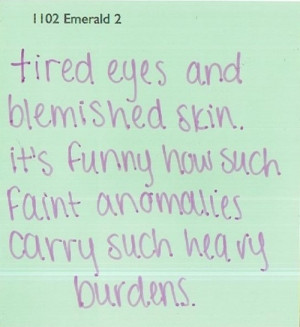 1102 Emerald 2
tired eyes and
blemished skin.
it's funny how such
faint anomalies
carry such heavy
burdens.